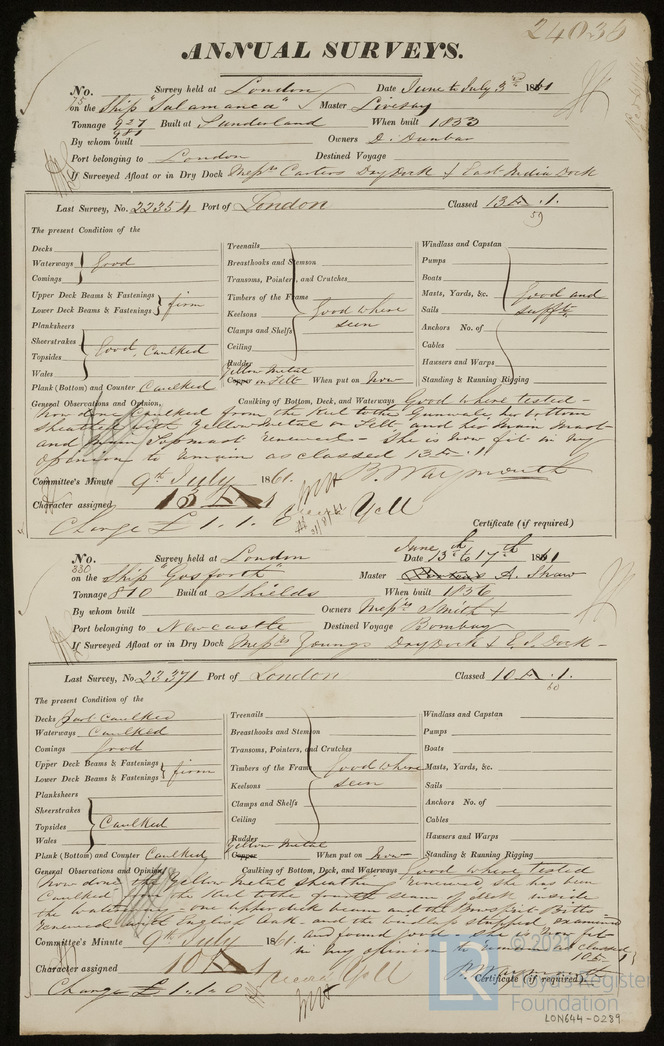 24036
ANNUAL SURVEYS.
No. 75 Survey held at London Date June to July 3rd 1861
on the Ship "Salamanca" Master Livesay
Tonnage 927 Built at Sunderland When built 1853
981
By whom built Owners D. Dunbar
Port belonging to London Destined Voyage
If Surveyed Afloat or in Dry Dock Messrs Carters Dry Dock & East India Dock
Last Survey, No. 22354 Port of London Classed 13 A .1.
59
The present Condition of the
Decks
Waterways Good
Comings
Upper Deck Beams & Fastenings
Lower Deck Beams & Fastenings firm
Planksheers
Sheerstrakes
Topsides Good, Caulked
Wales
Plank (Bottom) and Counter Caulked
Treenails
Breasthooks and Stemson
Transoms, Pointers, and Crutches
Timbers of the Frame
Keelsons Good where
Clamps and Shelfs seen
Ceiling
Rudder
Yellow Metal
Copper on Felt When put on Now
Windlass and Capstan
Pumps
Boats
Masts, Yards, &c. Good and
Sails sufft.
Anchors No. of
Cables
Hawsers and Warps
Standing & Running Rigging
General Observations and Opinion, Caulking of Bottom, Deck, and Waterways Good where tested -
Now done Caulked from the Keel to the Gunwale, her bottom
sheathed with Yellow Metal on Felt and her main mast
and Topmast renewed - She is now fit in my
opinion to remain as classed 13 A .1
Committee's Minute 9th July 1861. B. Waymouth
Character assigned 13 A 1
31/8/61
Charge £ 1.1.0 Certificate (if required)
No. 330 Survey held at London Date June 13th to 17th 1861
on the Ship "Gosforth" Master A. Shaw
Tonnage 810 Built at Shields When built 1856
By whom built Owners Messrs Smith &
Port belonging to Newcastle Destined Voyage Bombay
If Surveyed Afloat or in Dry Dock Messrs Youngs Dry Dock & E. I. Dock -
Last Survey, No. 23371 Port of London Classed 10 A .1.
60
The present Condition of the
Decks Part Caulked
Waterways Caulked
Comings Good
Upper Deck Beams & Fastenings
Lower Deck Beams & Fastenings firm
Planksheers
Sheerstrakes
Topsides Caulked
Wales
Plank (Bottom) and Counter Caulked
Treenails
Breasthooks and Stemson
Transoms, Pointers, and Crutches
Timbers of the Frame Good where
Keelsons seen
Clamps and Shelfs
Ceiling
Rudder
Yellow Metal
Copper When put on Now
Windlass and Capstan
Pumps
Boats
Masts, Yards, &c.
Sails
Anchors No. of
Cables
Hawsers and Warps
Standing & Running Rigging
General Observations and Opinion, Caulking of Bottom, Deck, and Waterways Good where tested
Now done the Yellow Metal Sheathing renewed, she has been
Caulked from the Keel to the fourth seam of deck inside
the waterways - one upper deck beam and the Bowsprit Bitts
renewed with English Oak and the windlass stripped examined
and found good - She is now fit
Committee's Minute 9th July 1861. in my opinion to remain as classed
10 A 1
Character assigned 10 A 1
B. Waymouth
Charge £ 1.1.0 Certificate (if required)
© 2021
LR
Lloyd's Register
Foundation
LON644-0289